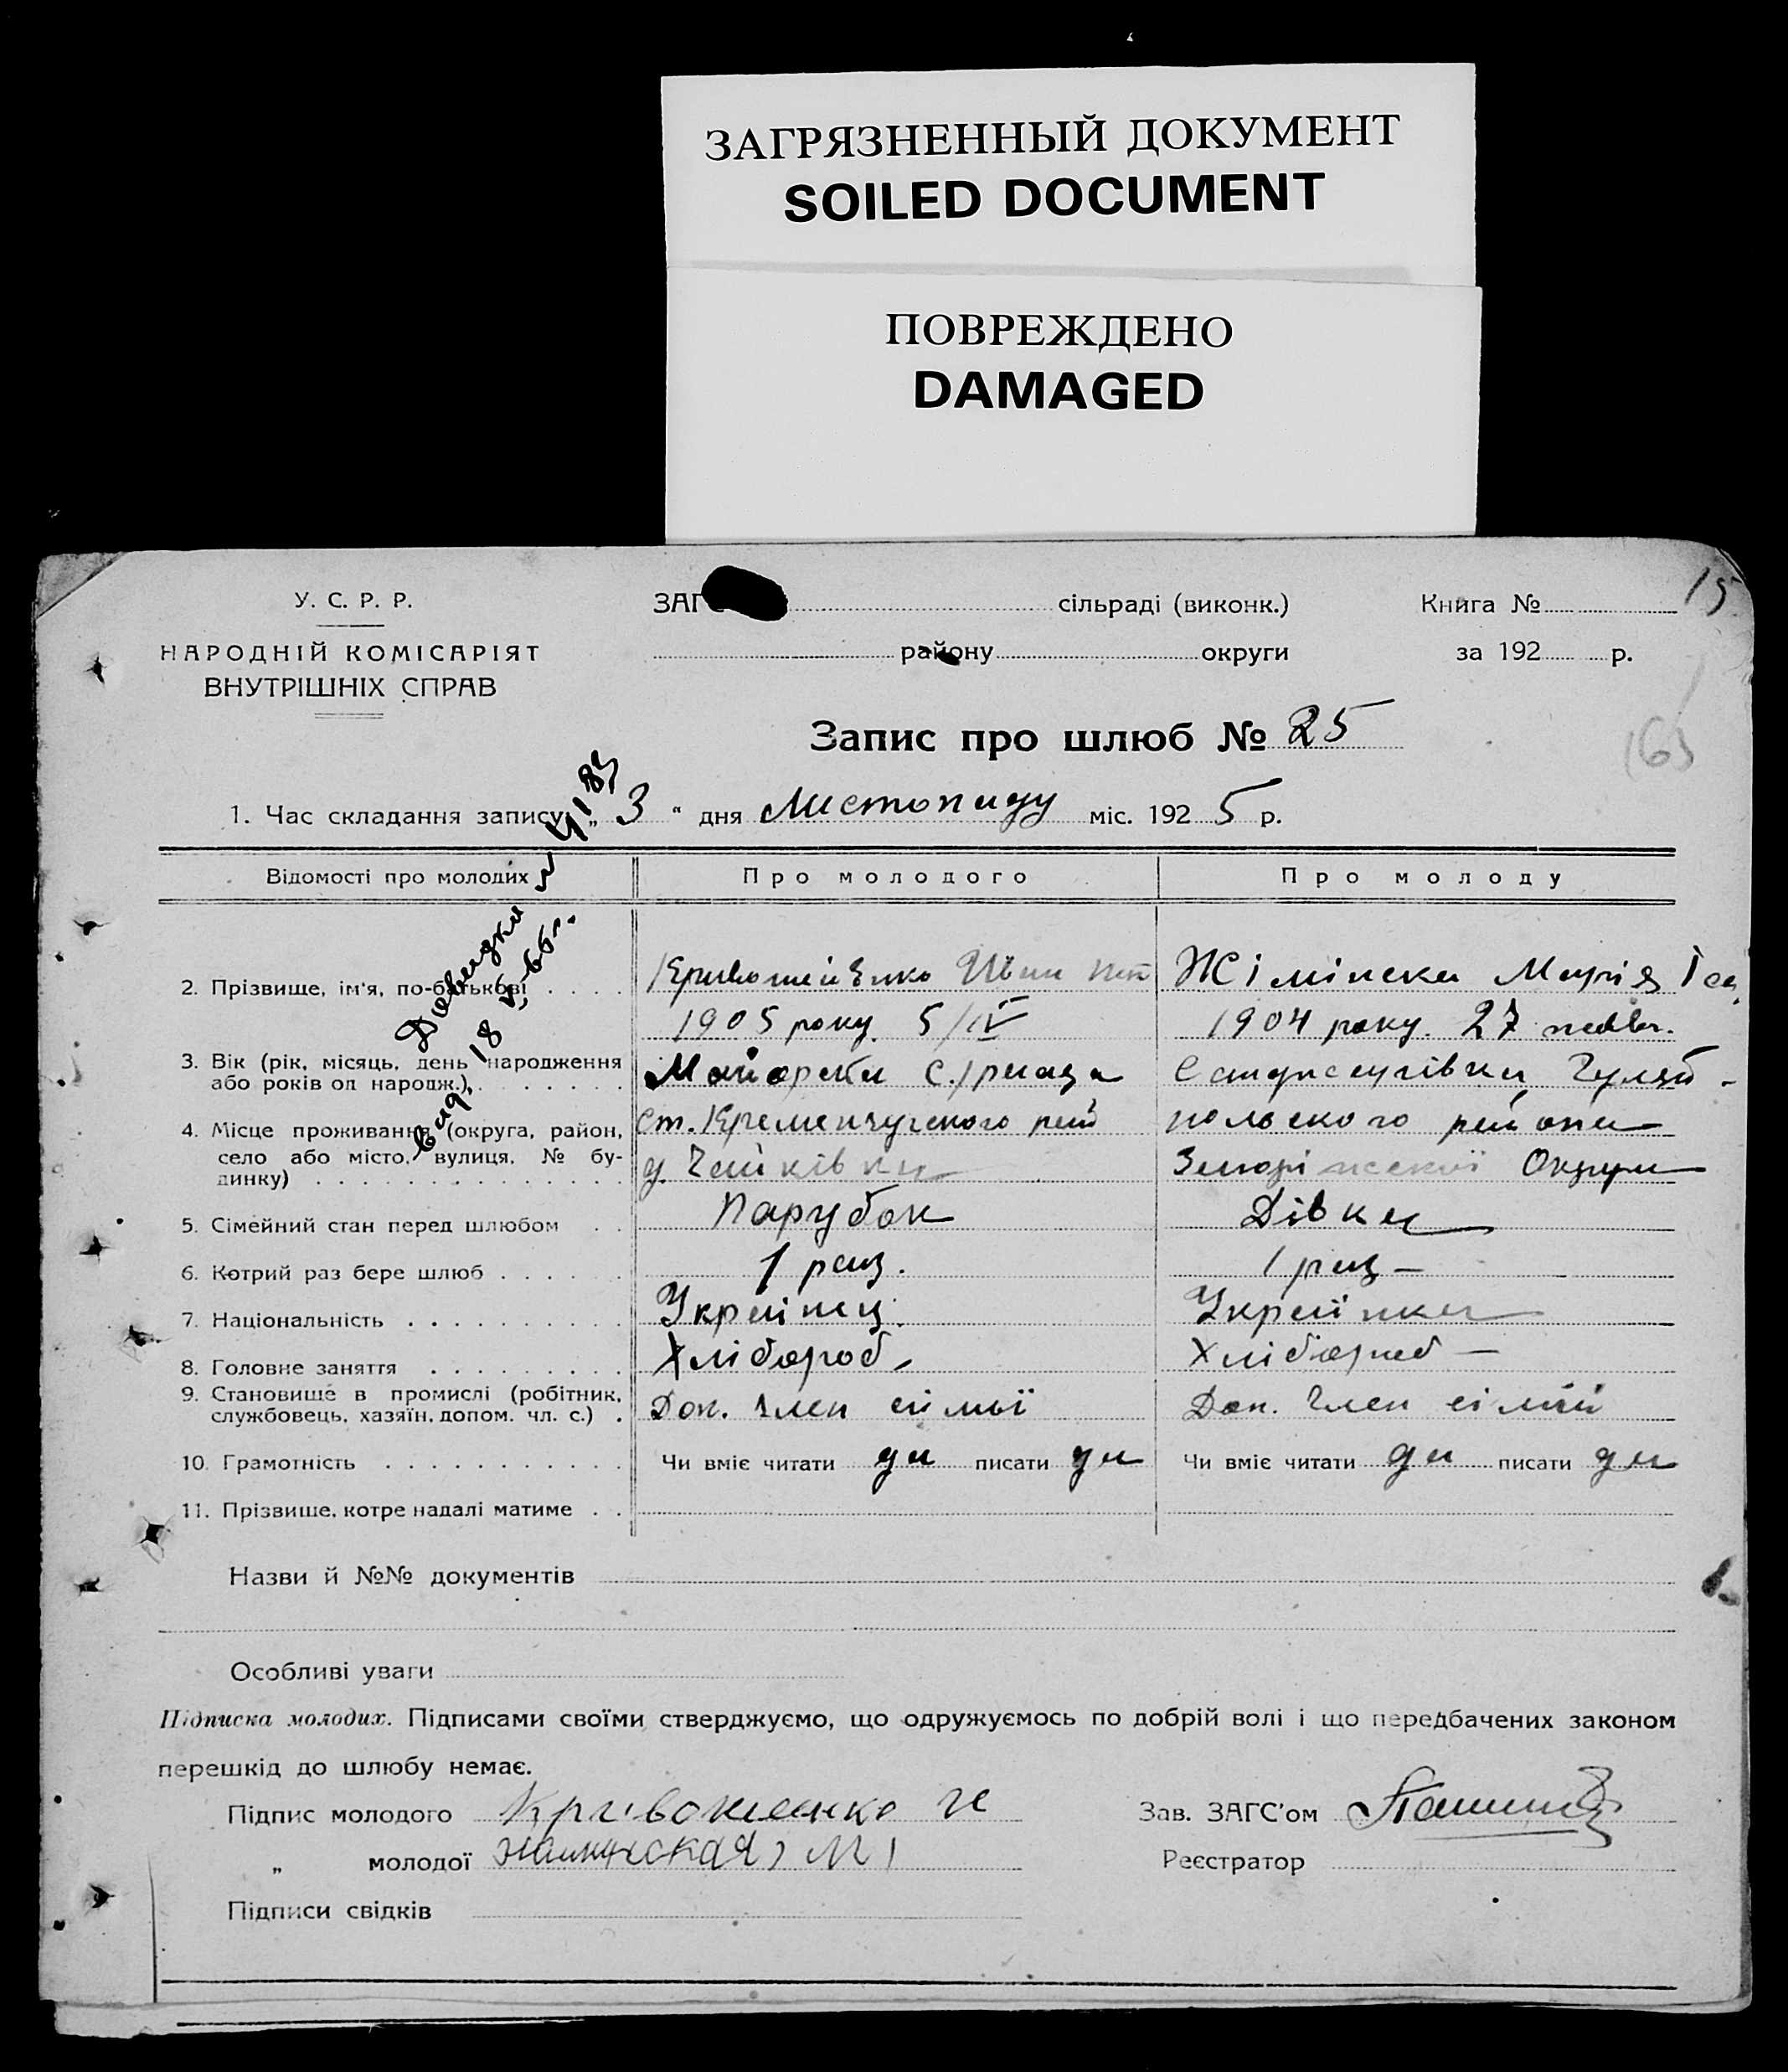 ЗАГРЯЗНЕННЫЙ ДОКУМЕНТ
SOILED DOCUMENT
ПОВРЕЖДЕНО
DAMAGED
15
У. С. Р. Р.
НАРОДНІЙ КОМІСАРІЯТ
ВНУТРІШНІХ СПРАВ
ЗАГС сільраді (виконк.)
Книга №
району округи
за 192 р.
Запис про шлюб № 25
1. Час складання запису: „ 3 “ дня Листопаду міс. 192 5 р.
Довидка
18
Відомості про молодих
Про молодого
Про молоду
2. Прізвище, ім'я, по-батькові
Іван
Марія
1905 року 5/IV
1904 року. 27
3. Вік (рік, місяць, день народження
або років од народж.)
Майорска с./рада
Гуляй-
4. Місце проживання (округа, район,
село або місто, вулиця, № бу-
динку)
ст. Кременчугского рай
польского района
Округи
5. Сімейний стан перед шлюбом
Парубок
Дівка
6. Котрий раз бере шлюб
1 раз.
1 раз —
7. Національність
Україниц
Українка
8. Головне заняття
Хлібороб
Хлібороб —
9. Становище в промислі (робітник,
службовець, хазяїн, допом. чл. с.)
Доп. член сімьї
Доп. член сімії
10. Грамотність
Чи вміє читати да писати да
Чи вміє читати да писати да
11. Прізвище, котре надалі матиме
Назви й №№ документів
Особливі уваги
Підписка молодих. Підписами своїми стверджуємо, що одружуємось по добрій волі і що передбачених законом
перешкід до шлюбу немає.
Підпис молодого Кривошеенко И
Зав. ЗАГС'ом
„ молодої М
Реєстратор
Підписи свідків